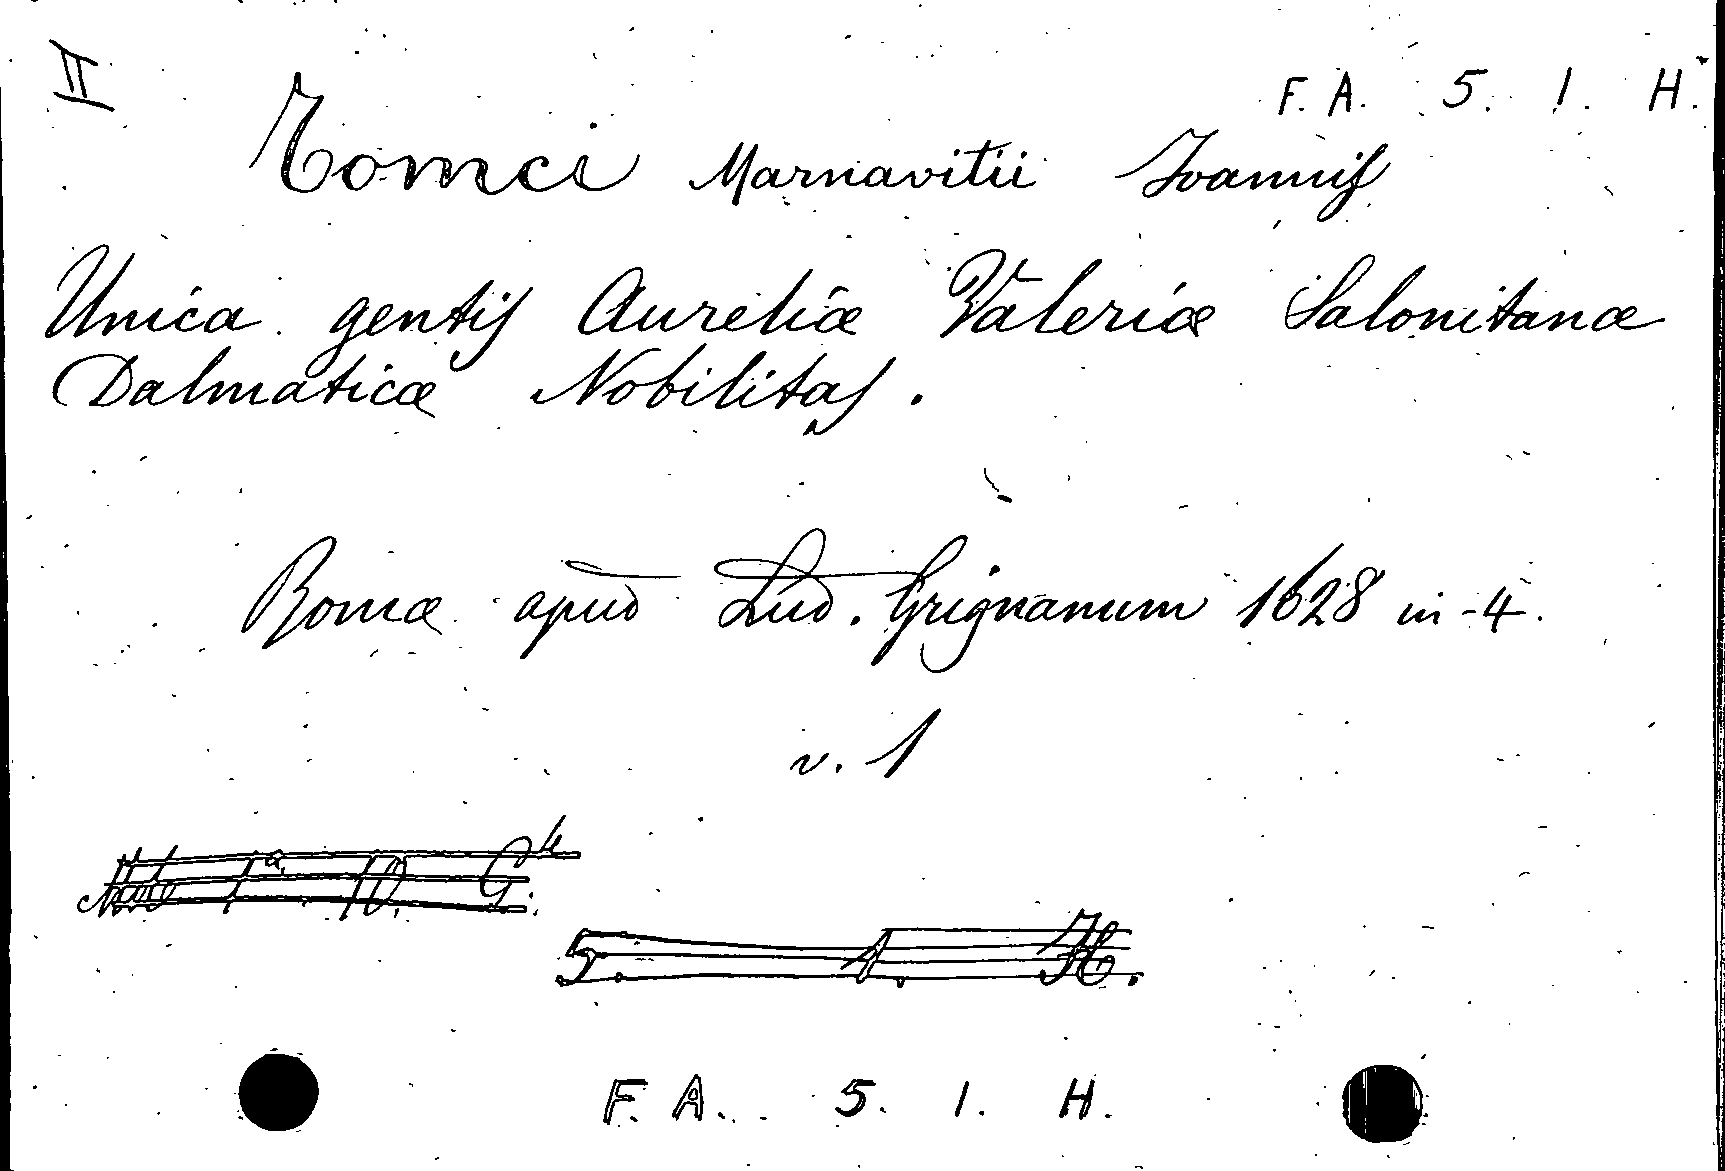 II
F. A. 5. 1. H.
Tomci Marnavitii Joannis
Unica gentis Aureliæ Valeriæ Salonitanæ
Dalmaticæ Nobilitas.
Romæ apud Lud. Grignanum 1628 in-4.
v. 1
1ª 10. G.4
5. 1. H.
F. A. 5. 1. H.